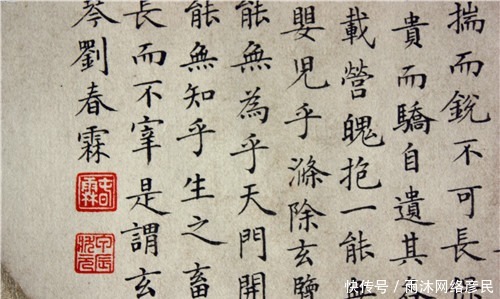 揣而銳不可長保
貴而驕自遺其
載營魄抱一能無
嬰兒乎滌除玄覽
能無為乎天門開
能無知乎生之畜
長而不宰是謂玄
琴劉春霖
春霖
甲辰狀元
快传号/雨沐网络彦民